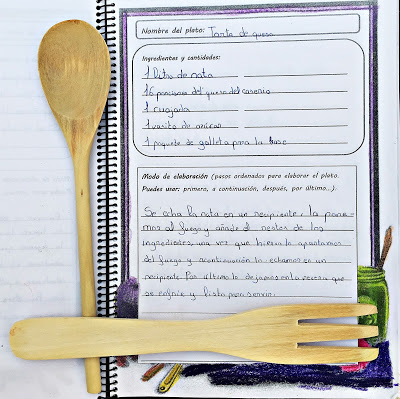 Nombre del plato: Tarta de queso
Ingredientes y cantidades:
1 litro de nata
16 porciones del queso del caserio
1 cuajada
1 vasito de azúcar
1 paquete de galleta para la base
Modo de elaboración (pasos ordenados para elaborar el plato.
Puedes usar: primero, a continuación, después, por último...).
Se echa la nata en un recipiente, la pone-
mos al fuego y añade el restos de los
ingredientes, una vez que hierva lo apartamos
del fuego y acontinuación lo echamos en un
recipiente. Por último lo dejamos en la nevera que
se enfrie y listo para servir.